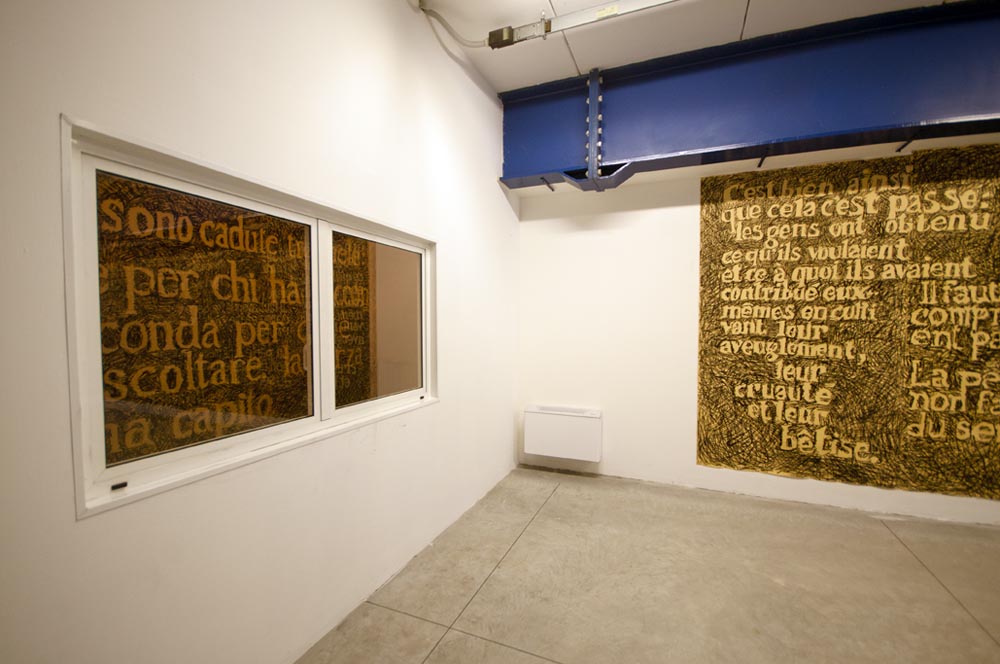 sono cadute
e per chi ha
conda per
scoltare, la
ha capito
C'est bien ainsi
que cela c'est passé,
les gens ont obtenu
ce qu'ils voulaient
et ce à quoi ils avaient
contribué eux-
mêmes en culti
vant leur
aveuglement,
leur
cruauté
et leur
bêtise.
Il faut
compr
ent pa
La pe
non fa
du se